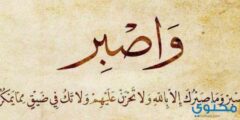 وَاصْبِر
وَمَا صَبْرُكَ إِلَّا بِاللهِ وَلَا تَحْزَنْ عَلَيْهِمْ وَلَا تَكُ فِي ضَيْقٍ مِمَّا يَمْكُرُ
محتوى